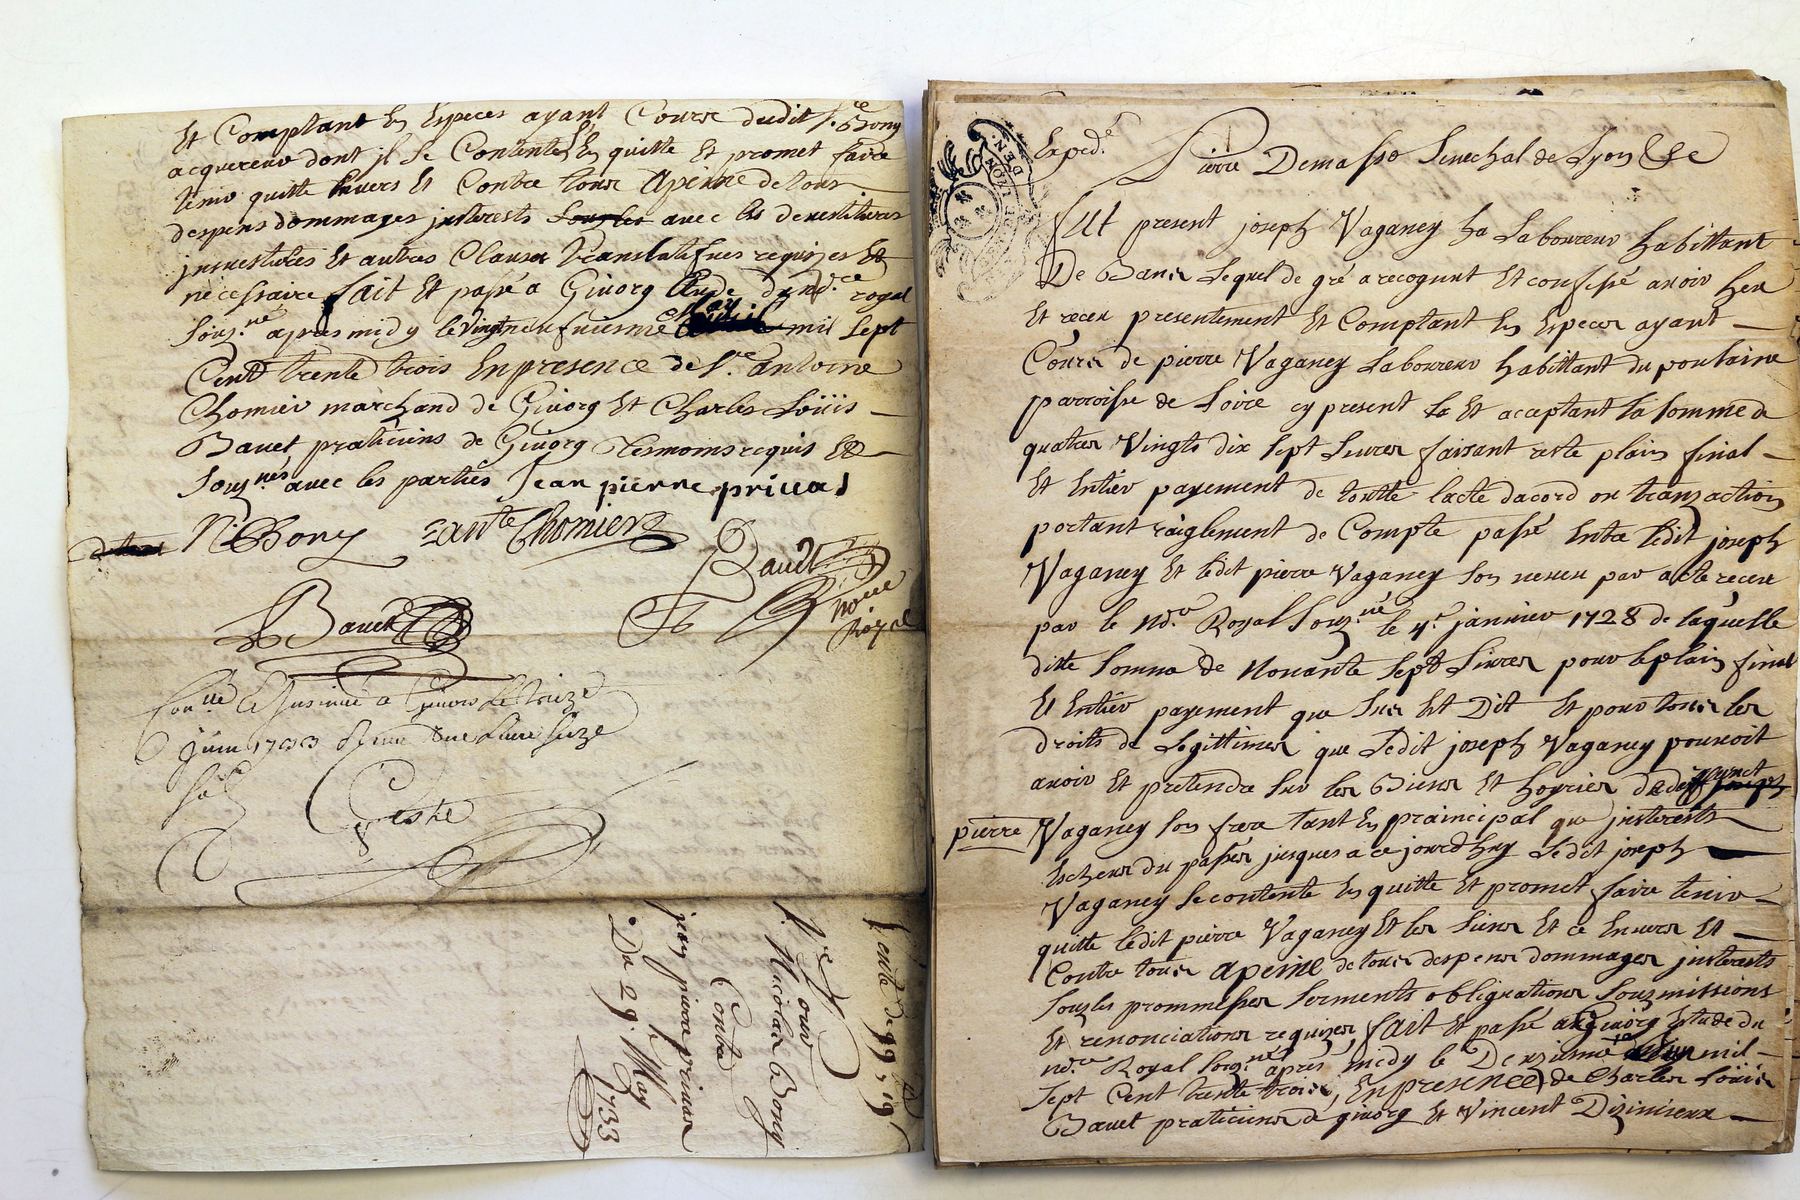 Et Comptant En Especes ayant Cours dudit Sr. Bony
acquereur dont jl se Contente En quitte Et promet faire
tenir quitte Envers Et Contre tous Apeine de tous
despens dommages jnterests avec les devestitures
jnvestitures Et autres Clauses translatifves requises Et
nécessaire fait Et passé a Givorg Etude du nore. royal
souz.né apres midy le vingtneufviesme May mil sept
Cent trente trois En presence de Sr. antoine
Chomier marchand de Givorg Et Charles Loüis
Bauet praticiens de Givorg tesmoins requis Et
souz.nés avec les parties Jean pierre privas
N Bony ante Chomier
Bauet
Bauet noire Royal
Con.lle Et Insinué a Givors Le treize
Juin 1733
Vente de
Pour
Sr. Nicolas Bony
Contre
jean pierre privas
Du 29. May
1733
Exped.é
Pierre Demasso Senechal de Lyon &c
fut present joseph Vaganey Laboureur habittant
De Bans Lequel de gré a recognut Et confessé avoir heu
Et receu presentement Et Comptant En Especes ayant
Cours de pierre Vaganey Laboureur habittant du poulaine
parroisse de Loire cy present Et acceptant la somme de
quatres Vingts dix sept Livres faisant reste plain final
Et Entier payement de toutte lacte dacord ou transaction
portant raiglement de Compte passé Entre ledit joseph
Vaganey Et ledit pierre Vaganey son neveu par acte receu
par le nore. Royal souz.né le janvier 1728 de laquelle
ditte somme de Nonante sept Livres pour leplain final
Et Entier payement que sus Est Dit Et pour tous les
droits de Legittimes que Ledit joseph Vaganey pouvoit
avoir Et pretendre sur les Biens Et hoyries de deffunct
pierre Vaganey son frere tant En prainncipal que jnterests
Escheus du passer jusques a ce jourdhuy Ledit joseph
Vaganey se contente En quitte Et promet faire tenir
quitte ledit pierre Vaganey Et les siens Et ce Envers Et
Contre tous Apeine de tous despens dommages jnterests
souz les prommesses serments obligations souzmissions
Et renonciations requizes, fait Et passé a Givorg Etude du
nore. Royal souz.né apres midy le Deuxieme mil
sept Cent trente trois, En presence de Charles Loüis
Bauet praticiens de givorg Et Vincent Dizimieux